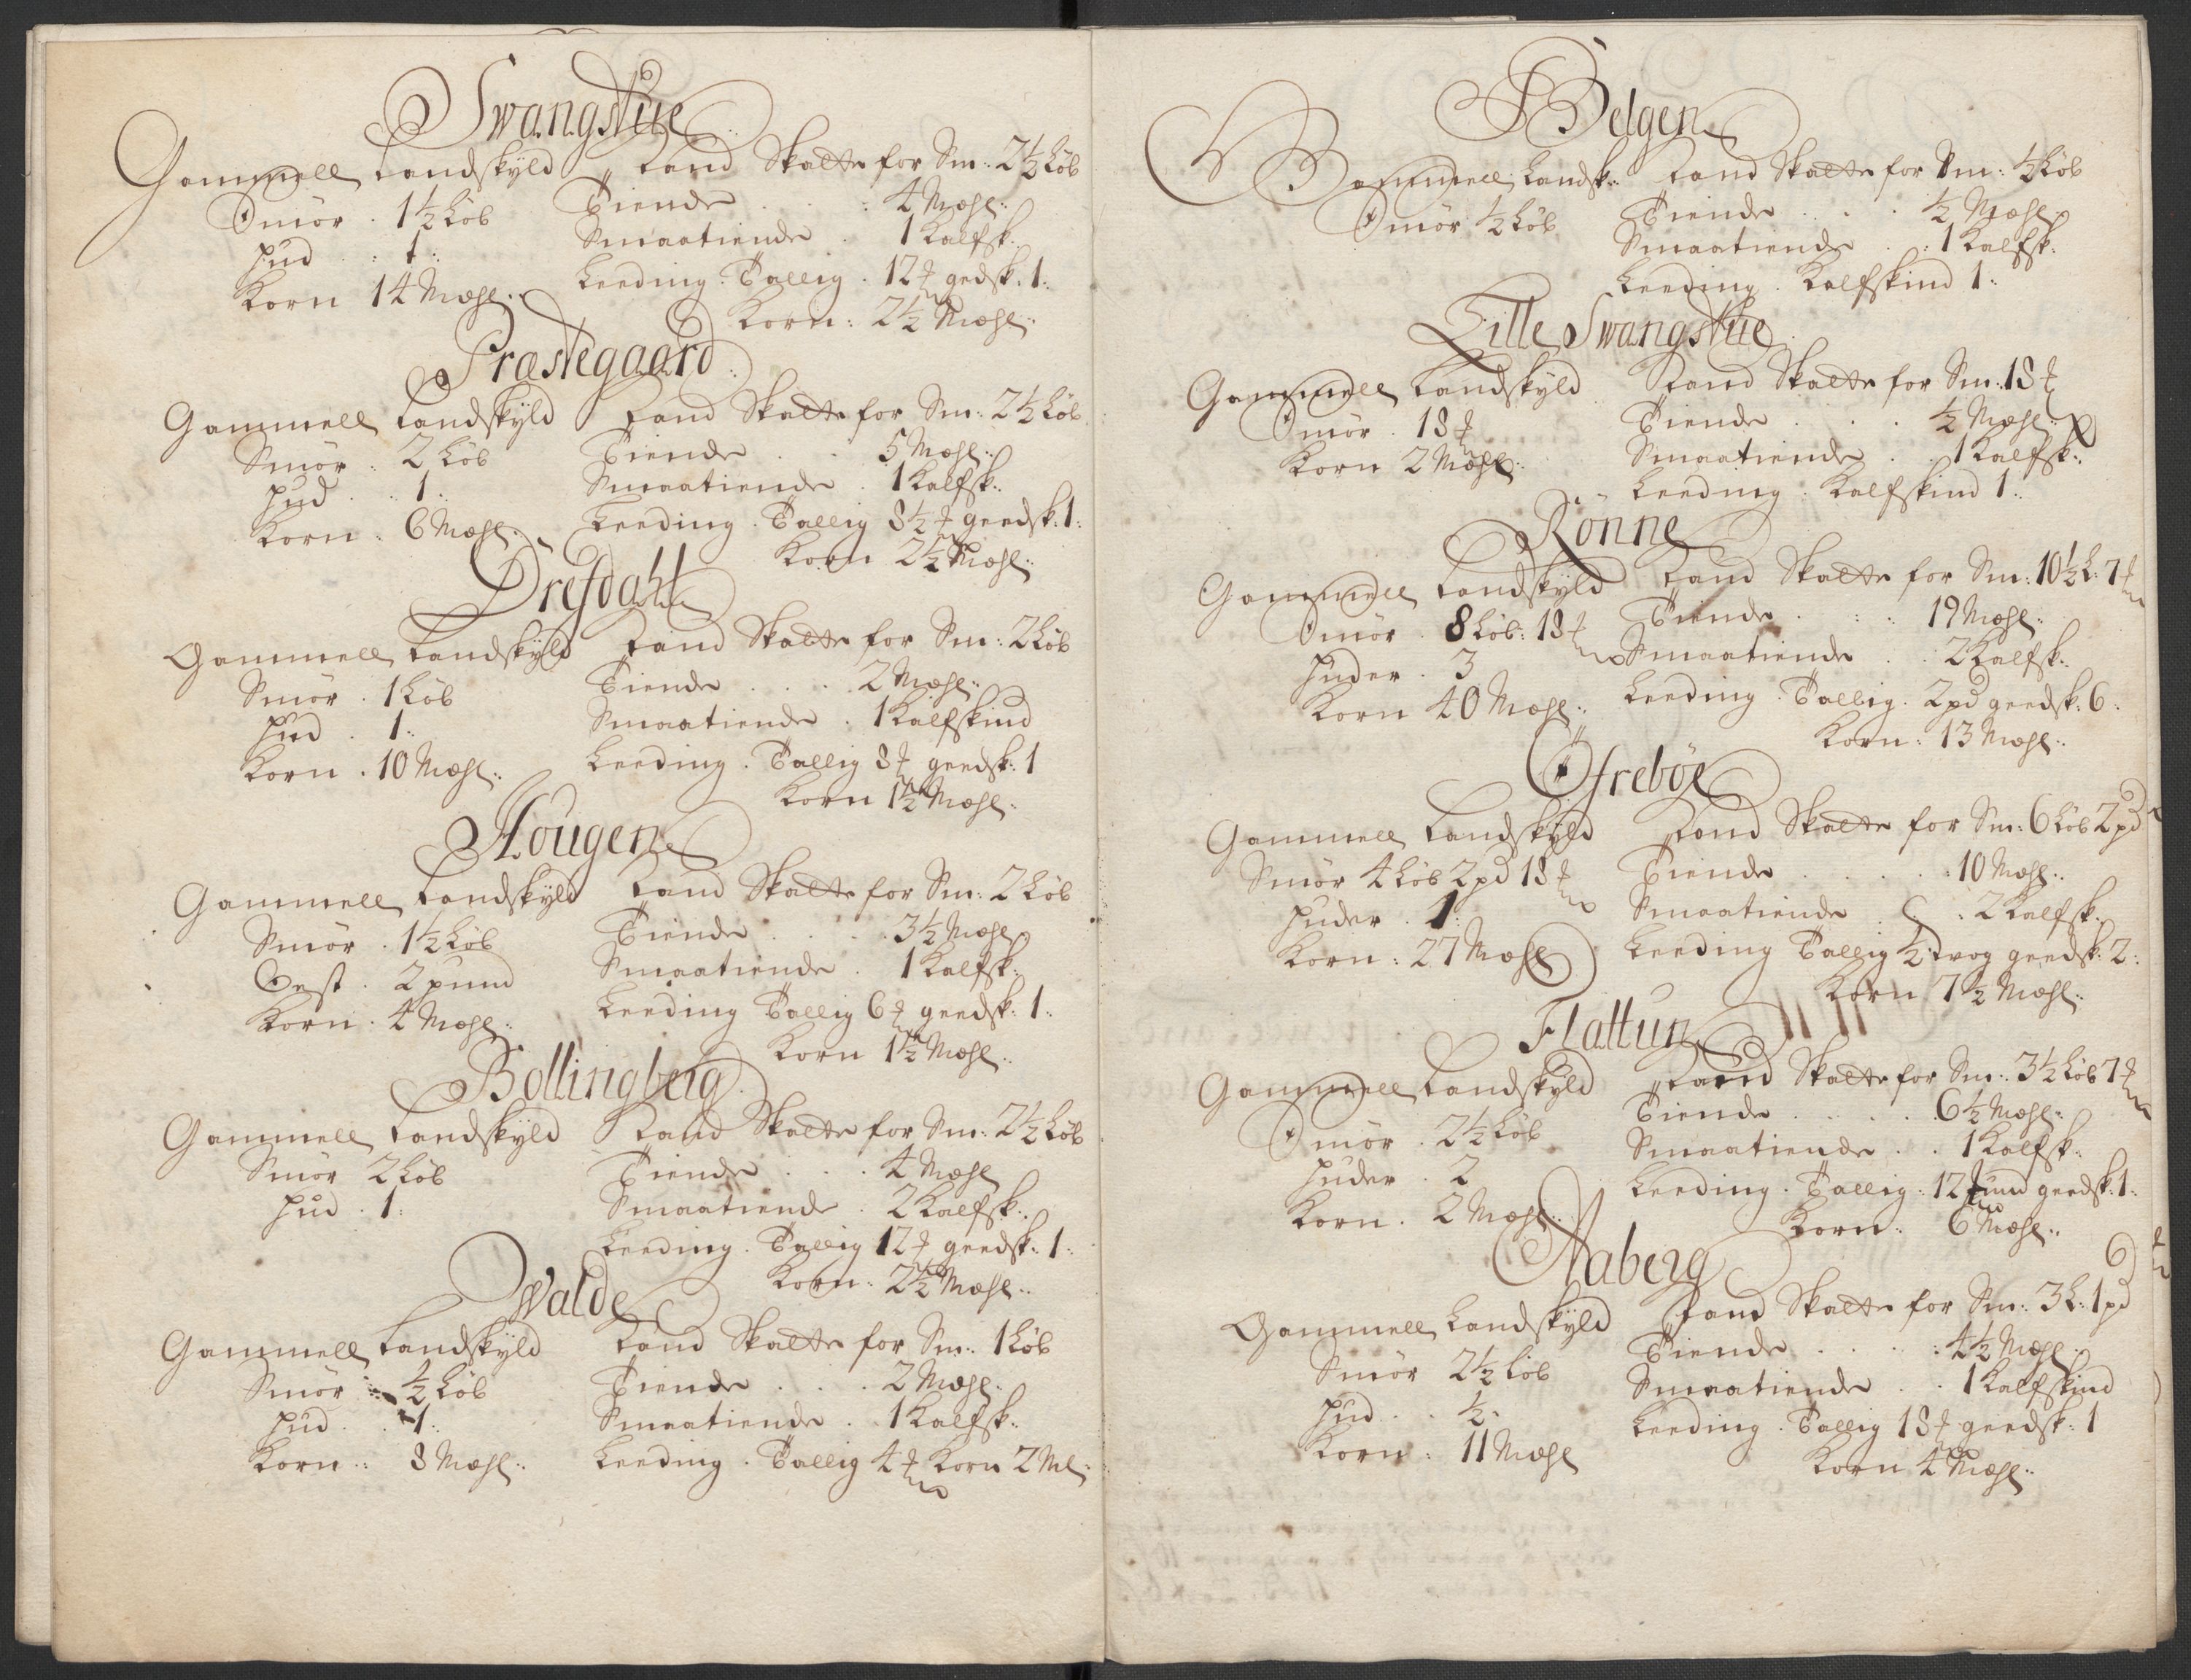 Swangstue
Gammell Landskyld Land Skatte for Sm: 2½ Løb
Smör . 1½ Løb Tiende . . 4 Mæhl:
Hud . . 1 : Smaatiende . 1 Kalfsk:
Korn 14 Mæhl: Leeding . Tallig . 12 ℔ gedsk: 1:
Korn: 2½ Mæhl:
Præstegaard
Gammell Landskyld Land Skatte for Sm: 2½ Løb
Smör : 2 Løb Tiende . . 5 Mæhl:
Hud . . 1 : Smaatiende . 1 Kalfsk:
Korn : 6 Mæhl: Leeding . Tallig 8½ ℔ geedsk: 1:
Korn 2½ Mæhl:
Drefdahl
Gammell Landskyld Land Skatte for Sm: 2 Løb
Smör . 1 Løb Tiende . . . 2 Mæhl:
Hud . 1: Smaatiende . 1 Kalfskind
Korn . 10 Mæhl: Leeding . Tallig 8 ℔ geedsk: 1
Korn 1½ Mæhl:
Hougen
Gammell Landskyld Land Skatte for Sm: 2 Løb
Smör . 1½ Løb Tiende . . . 3½ Mæhl
Gest . 2 pund Smaatiende . 1 Kalfsk:
Korn . 4 Mæhl: Leeding Tallig 6 ℔ geedsk: 1:
Korn 1½ Mæhl:
Bollingberg
Gammell Landskyld Land Skatte for Sm: 2½ Løb
Smör 2 Løb Tiende . . . 4 Mæhl
Hud . 1: Smaatiende . 2 Kalfsk:
Leeding . Tallig 12 ℔ geedsk: 1:
Korn: 2½ Mæhl:
Walde
Gammell Landskyld Land Skatte for Sm: 1 Løb
Smör : ½ Løb Tiende . . . 2 Mæhl:
Hud . . 1: Smaatiende . . 1 Kalfsk:
Korn : 8 Mæhl: Leeding . Tallig 4 ℔ Korn 2 Ml:
Belgen
Gammell Landsk: Land Skatte for Sm: ½ Løb
Smör ½ Løb Tiende . . . ½ Mæhl
Smaatiende . : 1 Kalfsk:
Leeding . Kalfskind 1:
Lille Swangstue
Gammell Landskyld Land Skatte for Sm: 18 ℔
Smör . 18 ℔ Tiende . . . ½ Mæhl:
Korn 2 Mæhl: Smaatiende . . 1 Kalfsk:
Leeding : Kalfskind 1:
Rönne
Gammell Landskyld Land Skatte for Sm: 10½ L: 7 ℔
Smör . 8 Løb: 18 ℔ Tiende . : : 19 Mæhl:
Huder . 3 Smaatiende . . 2 Kalfsk:
Korn 40 Mæhl: Leeding . Tallig . 2 pd geedsk: 6:
Korn: 13 Mæhl:
Ofrebøe
Gammell Landskyld Land Skatte for Sm: 6 Løb 2 pd
Smör 4 Løb 2 pd 18 ℔ Tiende . . . . 10 Mæhl:
Huder . 1: Smaatiende . . 2 Kalfsk:
Korn : 27 Mæhl Leeding Tallig ½ twog geedsk: 2:
Korn 7½ Mæhl:
Flattun
Gammell Landskyld Land Skatte for Sm: 3½ Løb 7 ℔
Smör . 2½ Løb Tiende . . . . 6½ Mæhl:
Huder . 2 Smaatiende . . 1 Kalfsk:
Korn . 2 Mæhl: Leeding . Tallig : 12 geedsk: 1:
Korn: 6 Mæhl:
Aaberg
Gammell Landskyld Land Skatte for Sm: 3 L: 1 pd
Smör 2½ Løb Tiende . . . : 4½ Mæhl:
Hud . . ½: Smaatiende . . 1 Kalfskind
Korn : 11 Mæhl Leeding . Tallig 18 ℔ geedsk: 1
Korn 4 Mæhl: